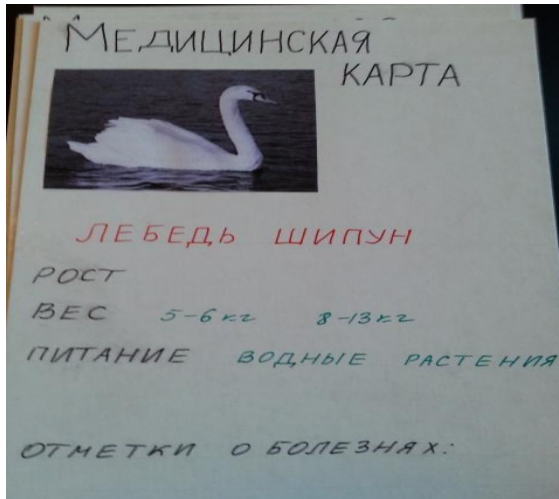 МЕДИЦИНСКАЯ
КАРТА
ЛЕБЕДЬ ШИПУН
РОСТ
ВЕС 5-6 кг 8-13 кг
ПИТАНИЕ ВОДНЫЕ РАСТЕНИЯ
ОТМЕТКИ О БОЛЕЗНЯХ: